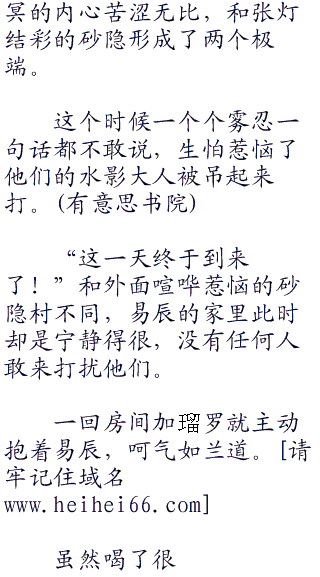 冥的内心苦涩无比，和张灯
结彩的砂隐形成了两个极
端。
这个时候一个个雾忍一
句话都不敢说，生怕惹恼了
他们的水影大人被吊起来
打。(有意思书院)
“这一天终于到来
了！”和外面喧哗惹恼的砂
隐村不同，易辰的家里此时
却是宁静得很，没有任何人
敢来打扰他们。
一回房间加瑠罗就主动
抱着易辰，呵气如兰道。[请
牢记住域名
www.heihei66.com]
虽然喝了很